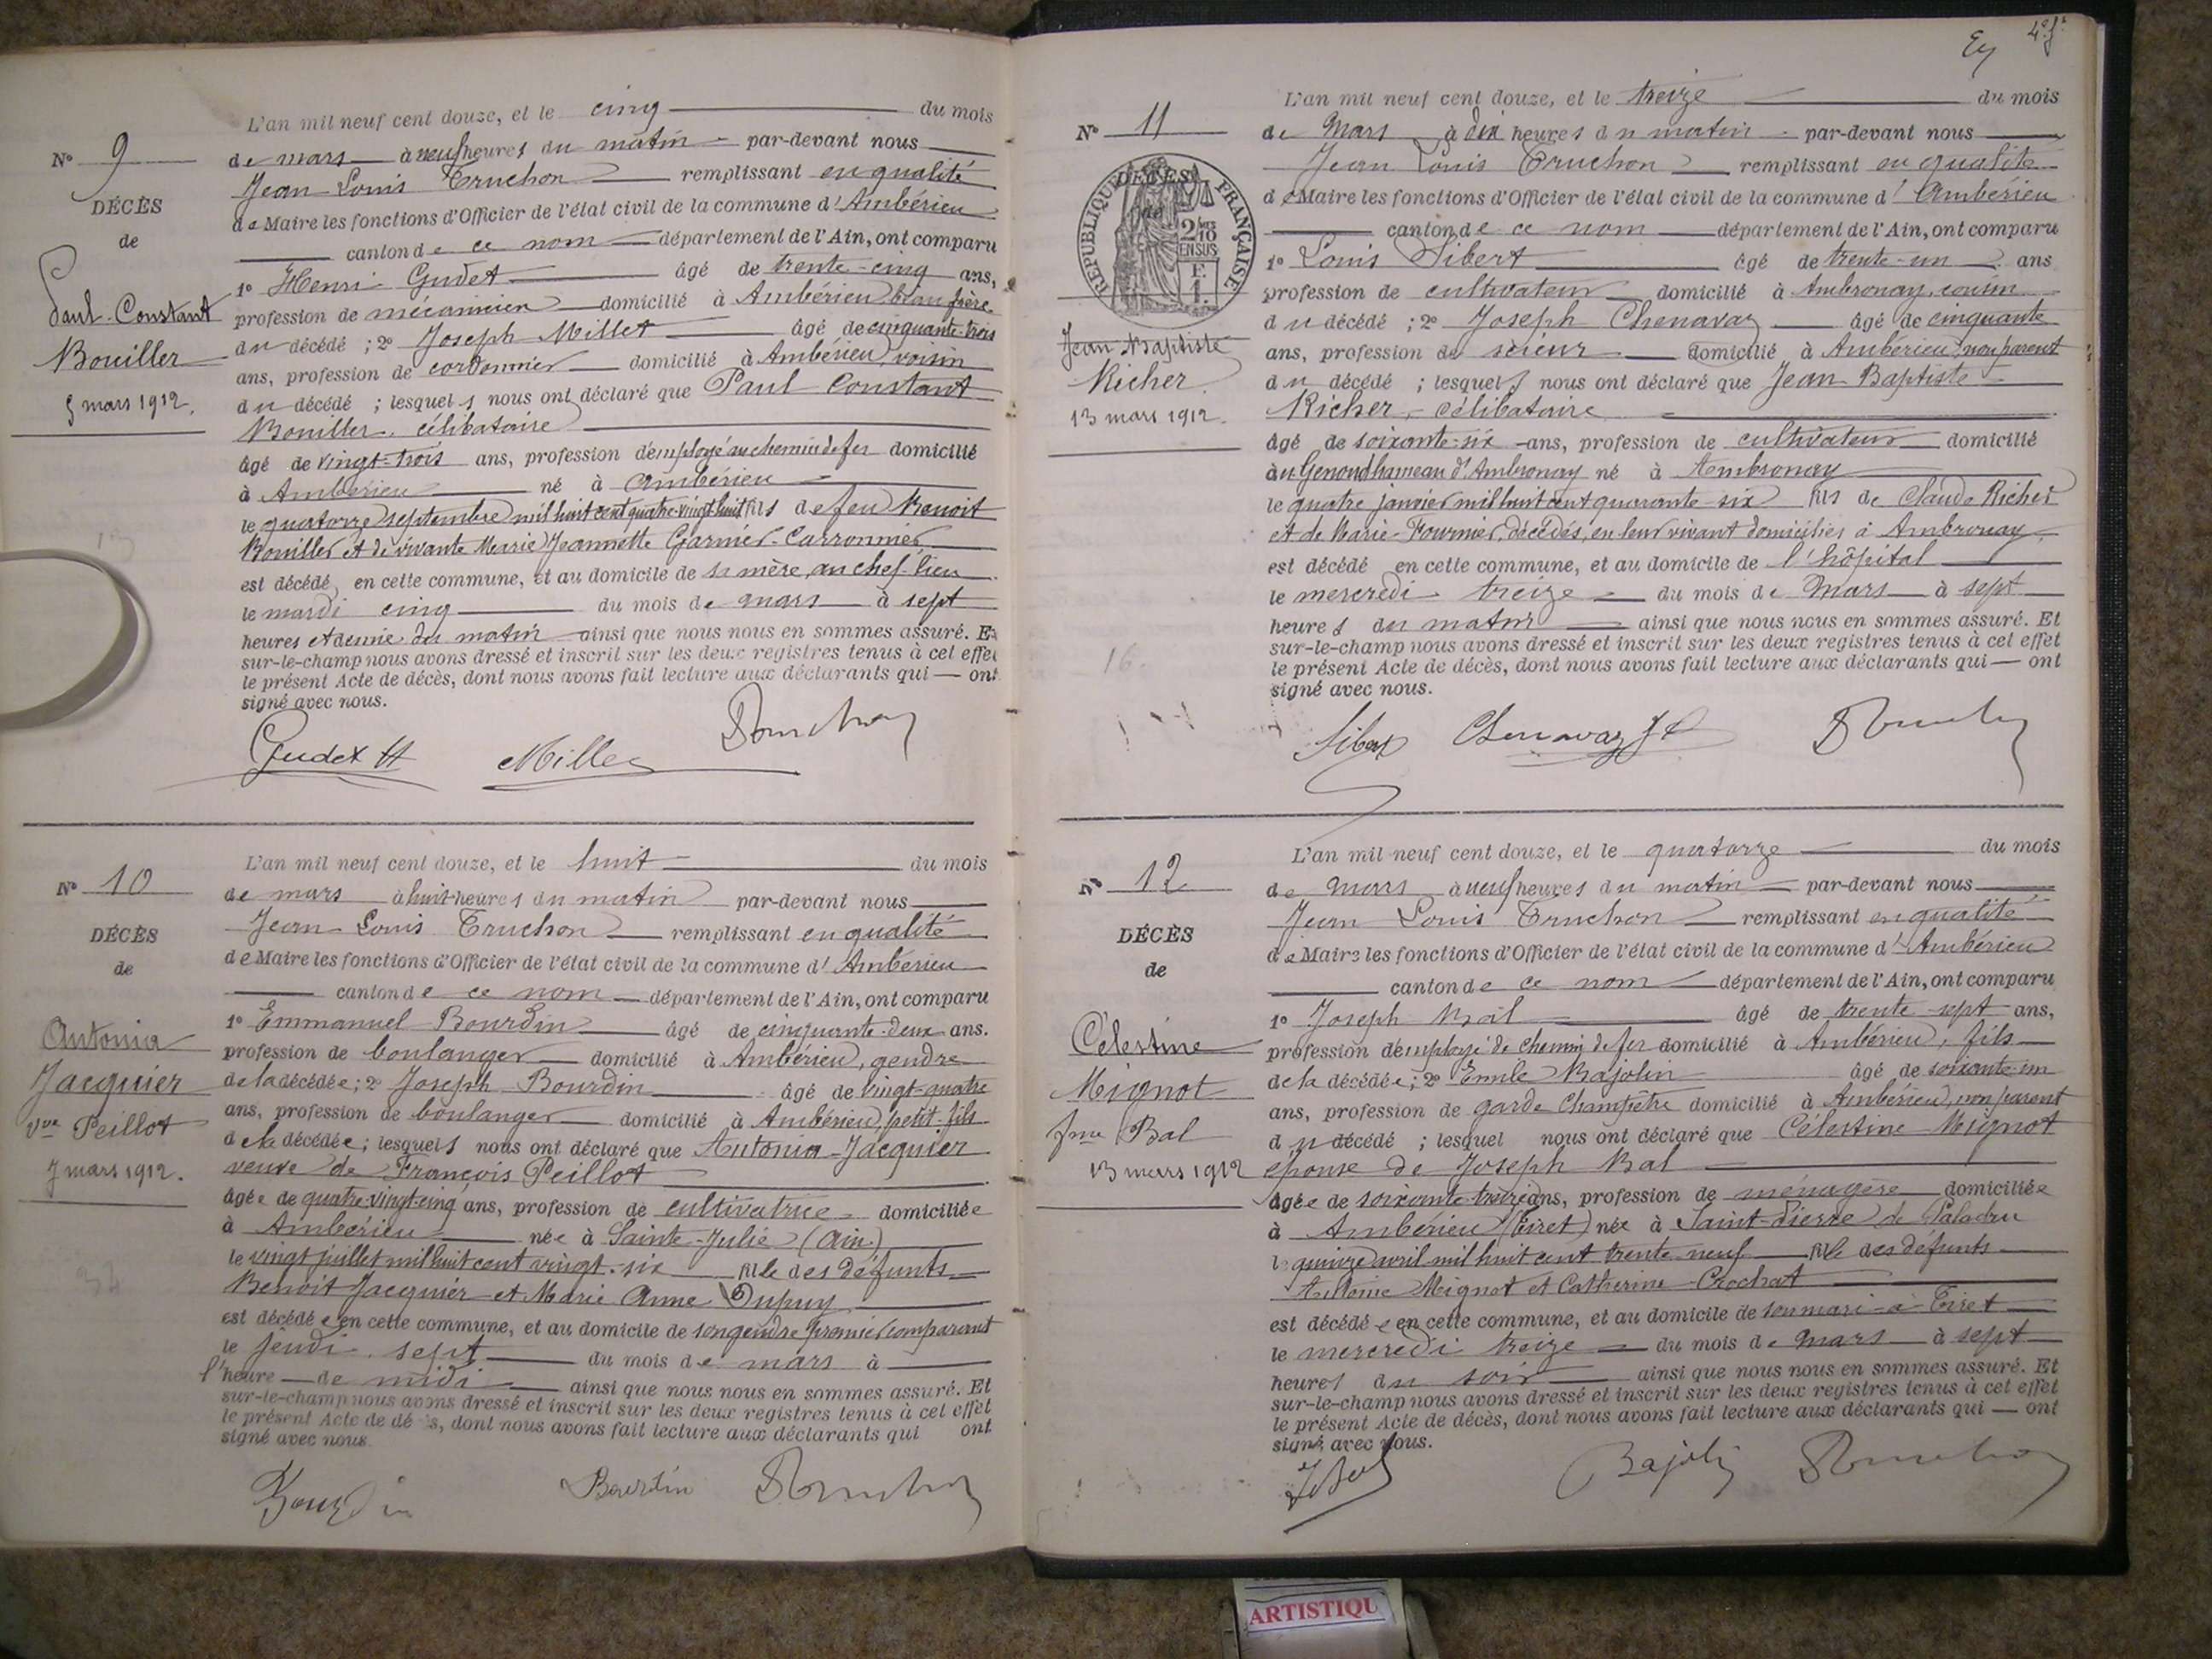 N° 9
DÉCÈS
de
Paul Constant
Bouiller
5 mars 1912.
L'an mil neuf cent douze, et le cinq du mois
de mars à neuf heures du matin par-devant nous
Jean Louis Truchon remplissant en qualité
de Maire les fonctions d'Officier de l'état civil de la commune d'Ambérieu
canton de ce nom département de l'Ain, ont comparu
1° Henri Gudet âgé de trente-cinq ans,
profession de mécanicien domicilié à Ambérieu beau frère
du décédé ; 2° Joseph Millet âgé de cinquante-trois
ans, profession de cordonnier domicilié à Ambérieu, voisin
du décédé ; lesquels nous ont déclaré que Paul Constant
Bouiller, célibataire
âgé de vingt-trois ans, profession d'employé au chemin de fer domicilié
à Ambérieu né à Ambérieu
le quatorze septembre mil huit cent quatre-vingt huit fils de feu Benoit
Bouiller et de vivante Marie Jeannette Garnier-Carronnier
est décédé, en cette commune, et au domicile de sa mère, au chef-lieu
le mardi cinq du mois de mars à sept
heures et demie du matin ainsi que nous nous en sommes assuré. Et
sur-le-champ nous avons dressé et inscrit sur les deux registres tenus à cet effet
le présent Acte de décès, dont nous avons fait lecture aux déclarants qui — ont
signé avec nous.
Gudet H Millet Truchon
N° 10
DÉCÈS
de
Antonia
Jacquier
Vve Peillot
7 mars 1912.
L'an mil neuf cent douze, et le huit du mois
de mars à huit heures du matin par-devant nous
Jean Louis Truchon remplissant en qualité
de Maire les fonctions d'Officier de l'état civil de la commune d'Ambérieu
canton de ce nom département de l'Ain, ont comparu
1° Emmanuel Bourdin âgé de cinquante-deux ans.
profession de boulanger domicilié à Ambérieu, gendre
de la décédée ; 2° Joseph Bourdin âgé de vingt-quatre
ans, profession de boulanger domicilié à Ambérieu, petit-fils
de la décédée ; lesquels nous ont déclaré que Antonia Jacquier
veuve de François Peillot
âgée de quatre-vingt-cinq ans, profession de cultivatrice domiciliée
à Ambérieu née à Sainte-Julie (Ain)
le vingt juillet mil huit cent vingt-six fille des défunts
Benoit Jacquier et Marie Anne Dupuy
est décédée en cette commune, et au domicile de son gendre premier comparant
le jeudi sept du mois de mars à
l'heure de midi ainsi que nous nous en sommes assuré. Et
sur-le-champ nous avons dressé et inscrit sur les deux registres tenus à cet effet
le présent Acte de dé s, dont nous avons fait lecture aux déclarants qui ont
signé avec nous.
Bourdin Bourdin Truchon
4e f.
N° 11
DÉCÈS
RÉPUBLIQUE FRANÇAISE
2/10 EN SUS
Jean Baptiste
Richer
13 mars 1912.
L'an mil neuf cent douze, et le treize du mois
de Mars à dix heures du matin par-devant nous
Jean Louis Truchon remplissant en qualité
de Maire les fonctions d'Officier de l'état civil de la commune d'Ambérieu
canton de ce nom département de l'Ain, ont comparu
1° Louis Sibert âgé de trente-un ans
profession de cultivateur domicilié à Ambronay, cousin
du décédé ; 2° Joseph Chenavaz âgé de cinquante
ans, profession de scieur domicilié à Ambérieu, non parent
du décédé ; lesquels nous ont déclaré que Jean-Baptiste
Richer, célibataire
âgé de soixante-six ans, profession de cultivateur domicilié
au Genoud hameau d'Ambronay né à Ambronay
le quatre janvier mil huit cent quarante-six fils de Claude Richer
et de Marie Fournier, décédés, en leur vivant domiciliés à Ambronay
est décédé en cette commune, et au domicile de l'hôpital
le mercredi treize du mois de Mars à sept
heures du matin ainsi que nous nous en sommes assuré. Et
sur-le-champ nous avons dressé et inscrit sur les deux registres tenus à cet effet
le présent Acte de décès, dont nous avons fait lecture aux déclarants qui — ont
signé avec nous.
Sibert Chenavaz Truchon
N° 12
DÉCÈS
de
Célestine
Mignot
fme Bal
13 mars 1912
L'an mil neuf cent douze, et le quatorze du mois
de mars à neuf heures du matin par-devant nous
Jean Louis Truchon remplissant en qualité
de Maire les fonctions d'Officier de l'état civil de la commune d'Ambérieu
canton de ce nom département de l'Ain, ont comparu
1° Joseph Bal âgé de trente-sept ans,
profession d'employé de chemin de fer domicilié à Ambérieu, fils
de la décédée ; 2° Emile Bajolin âgé de soixante-un
ans, profession de garde champêtre domicilié à Ambérieu, non parent
du décédé ; lesquel nous ont déclaré que Célestine Mignot
épouse de Joseph Bal
âgée de soixante-treize ans, profession de ménagère domiciliée
à Ambérieu (Tiret) née à Saint-Pierre de Paladru
le quinze avril mil huit cent trente neuf fille des défunts
Antoine Mignot et Catherine Crochat
est décédée en cette commune, et au domicile de son mari à Tiret
le mercredi treize du mois de mars à sept
heures du soir ainsi que nous nous en sommes assuré. Et
sur-le-champ nous avons dressé et inscrit sur les deux registres tenus à cet effet
le présent Acte de décès, dont nous avons fait lecture aux déclarants qui — ont
signé avec nous.
J Bal Bajolin Truchon
ARTISTIQU